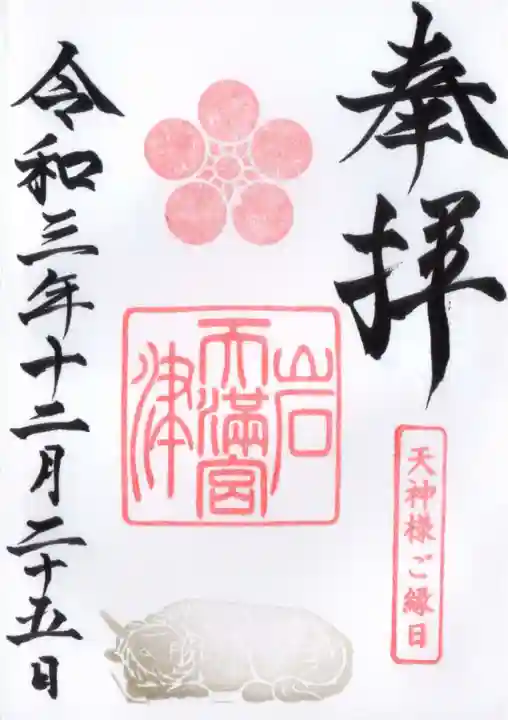 奉拝
天神様ご縁日
岩津
天満宮
令和三年十二月二十五日